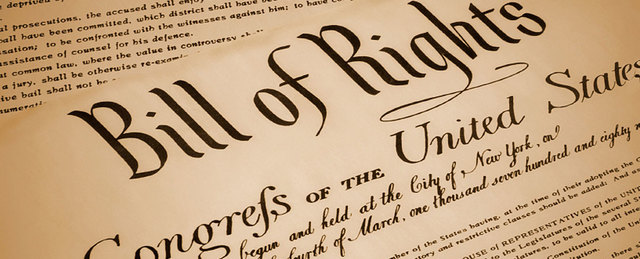 al prosecutions, the accused shall enjoy
all have been committed, which district shall have be
sation; to be confronted with the witnesses against him; to have co
ssistance of counsel for his defence.
t common law, where the value in controversy shall
a jury, shall be otherwise re-exami
ive bail shall not be
numerati
Bill of Rights
Congreſs OF THE United States
begun and held at the City of New York, on
fourth of March, one thousand seven hundred and eighty n
mber of the States having, at the time of their adopting the C
atory and restrictive clauses should be added: And as
OUSE OF REPRESENTATIVES of the UNI
to the Legislatures of the several S
to be valid to all inte
Constitution of the